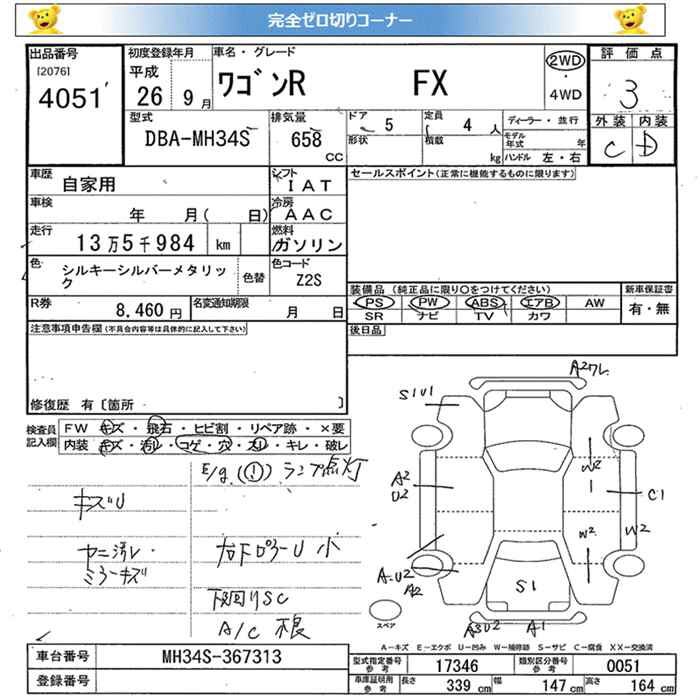 完全ゼロ切りコーナー
出品番号
[2076]
4051
初度登録年月
平成
26 9月
車名・グレード
ワゴンR FX
2WD
・
4WD
評価点
3
外装 内装
C D
型式
DBA-MH34S
排気量
658
CC
ドア 5
形状
定員 4 人
積載 kg
ディーラー・並行
モデル年式 年
ハンドル 左・右
車歴
自家用
シフト
IAT
車検
年 月( 日)
冷房
AAC
走行
13万5千984 km
燃料
ガソリン
色
シルキーシルバーメタリック
色替
色コード
Z2S
R券
8,460円
名変通知期限
月 日
セールスポイント(正常に機能するものに限ります)
装備品 (純正品に限り○をつけてください)
PS PW ABS エアB AW
SR ナビ TV カワ
新車保証書
有・無
後日品
注意事項申告欄(不具合内容等は具体的に記入して下さい)
修復歴 有〔箇所 〕
検査員記入欄
FW キズ・飛石・ヒビ割・リペア跡・×要
内装 キズ・汚レ・コゲ・穴・スリ・キレ・破レ
E/g (!) ランプ点灯
キズU
ヤニ汚レ・
ミラーキズ
右下ロアーU 小
下回りSC
A/C 不良
A2ワレ
S1U1
A2
U2
W2
1
C1
W2
W2
A-U2
A2
S1
A3U2
A1
スペア
A-キズ E-エクボ U-凹み W-補修跡 S-サビ C-腐食 XX-交換済
車台番号
MH34S-367313
登録番号
型式指定番号
参考
17346
類別区分番号
参考
0051
車庫証明用
参考
長さ 339 cm
幅 147 cm
高さ 164 cm